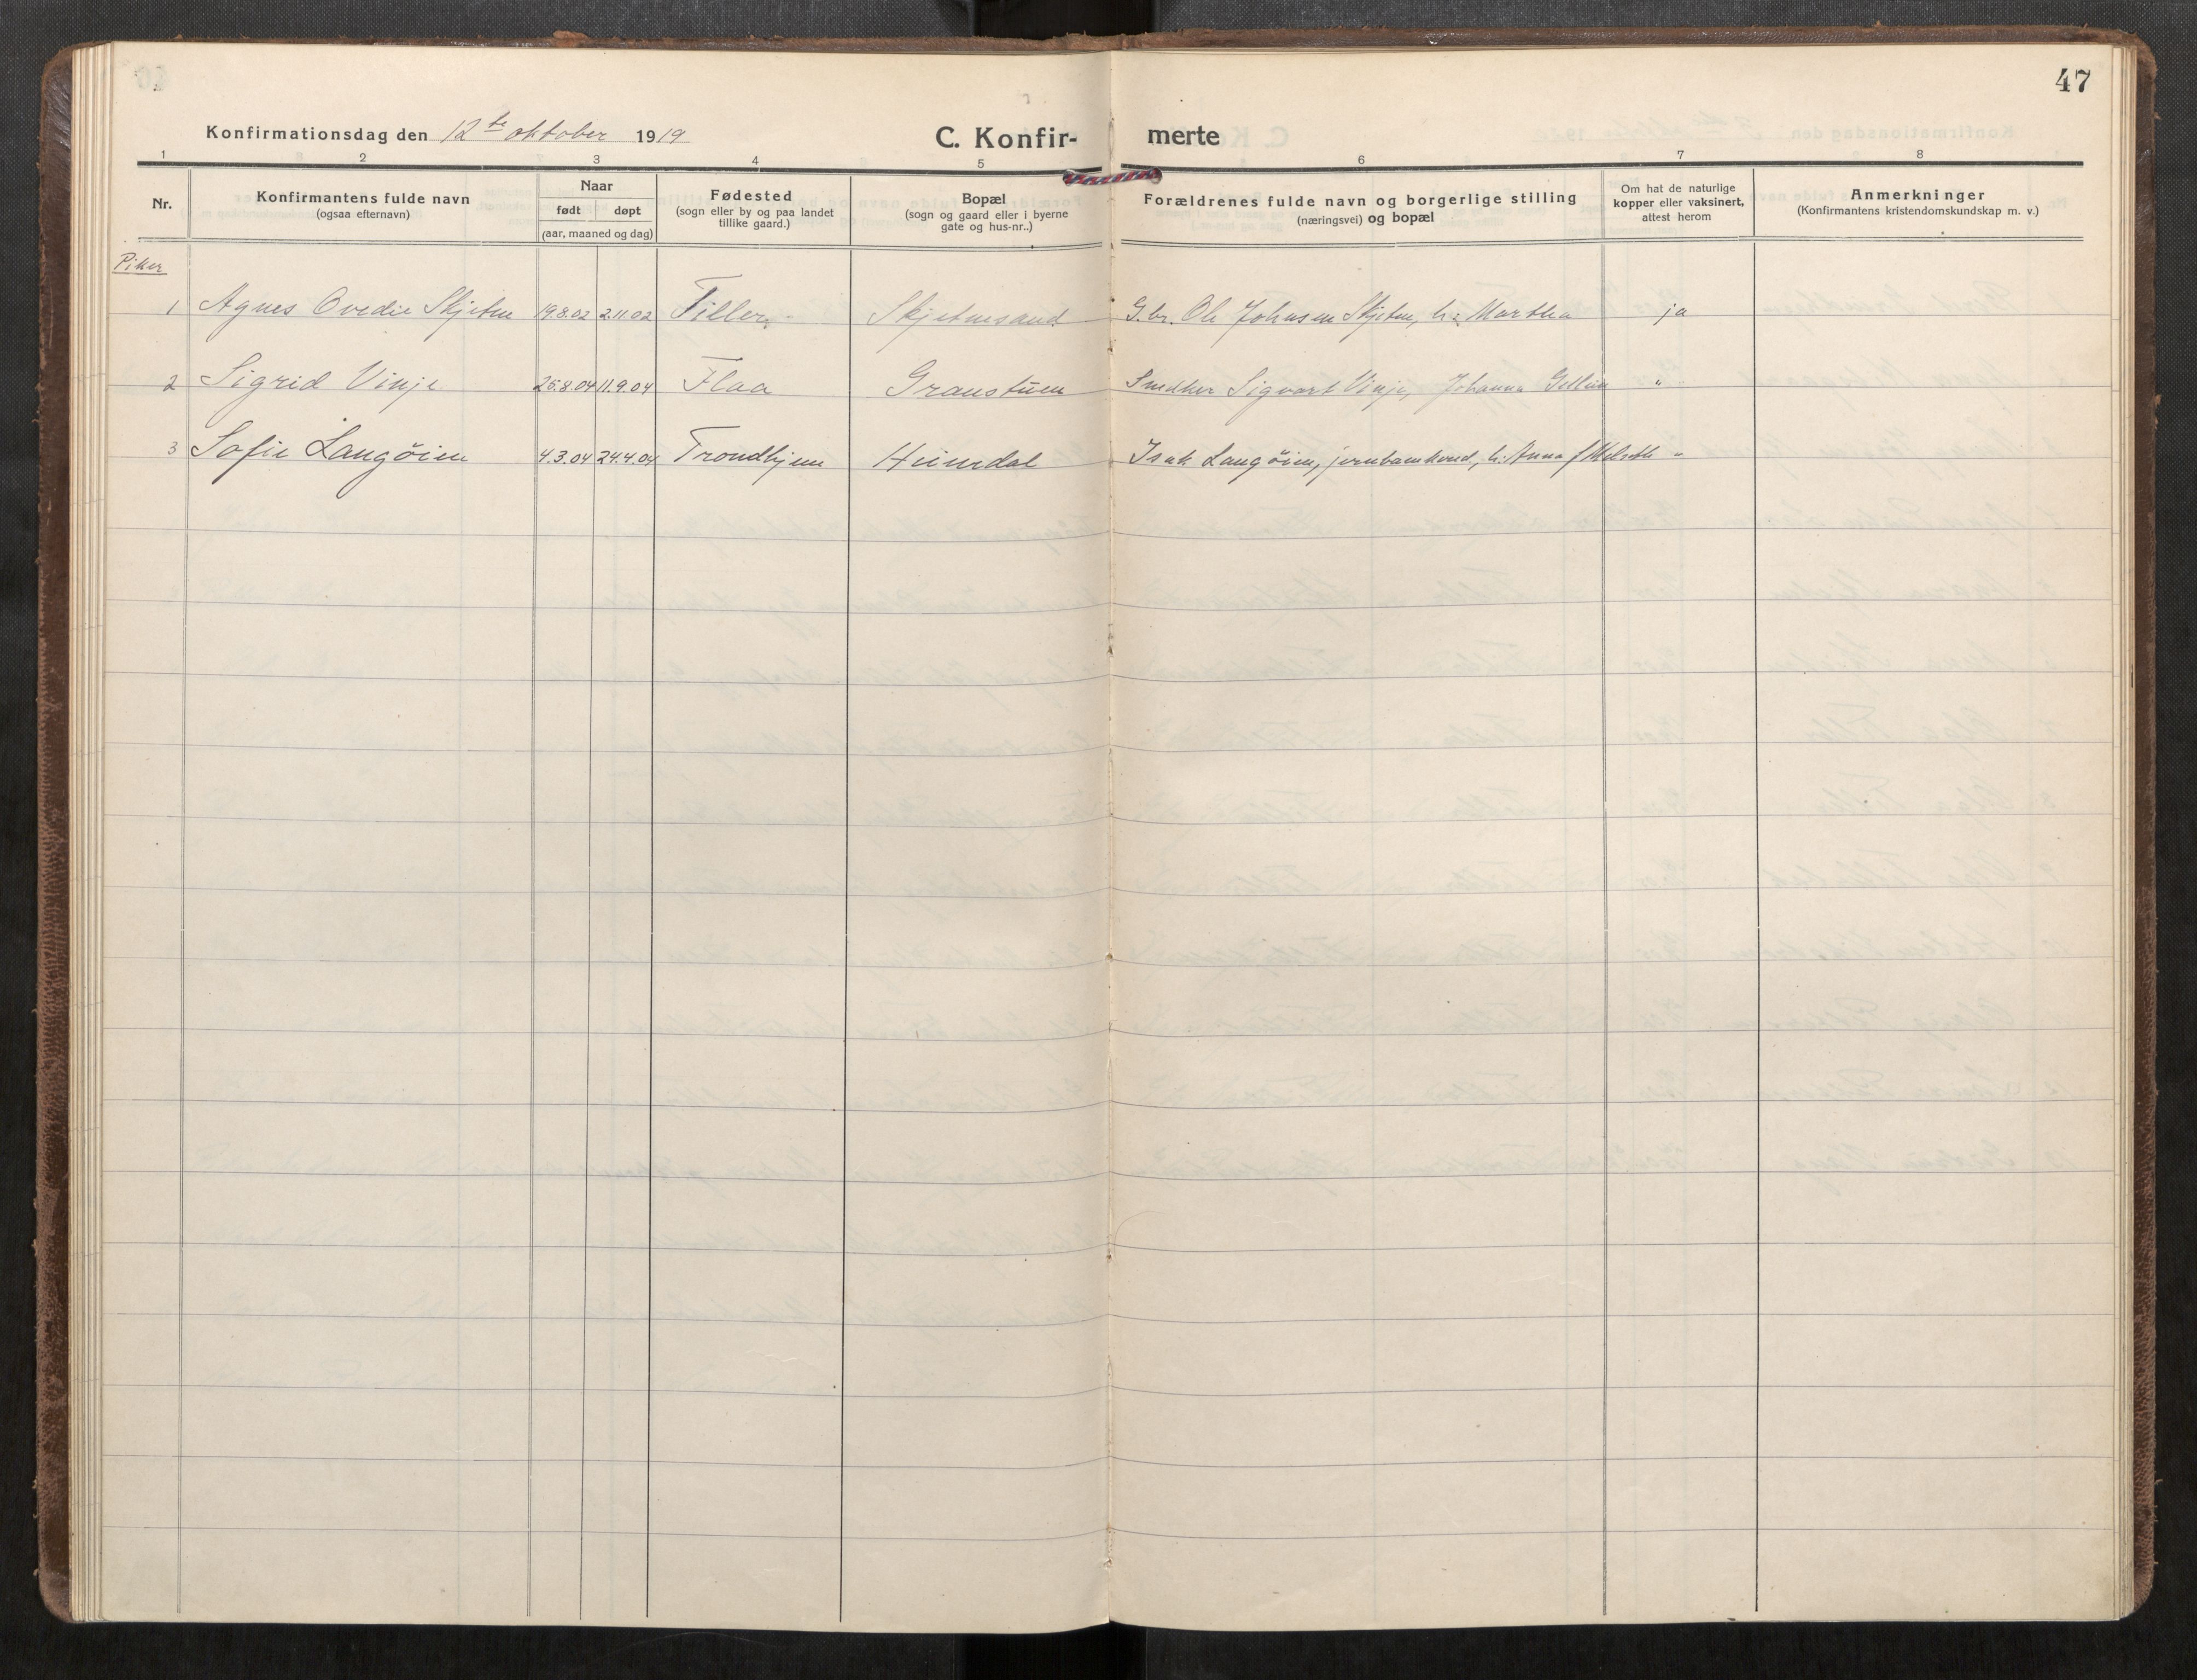 47
Konfirmationsdag den 12te oktober 1919 C. Konfir- merte
1 2 3 4 5 6 7 8
Nr. Konfirmantens fulde navn (ogsaa efternavn) Naar født døpt (aar, maaned og dag) Fødested (sogn eller by og paa landet tillike gaard.) Bopæl (sogn og gaard eller i byerne gate og hus-nr..) Forældrenes fulde navn og borgerlige stilling (næringsvei) og bopæl Om hat de naturlige kopper eller vaksinert, attest herom Anmerkninger (Konfirmantens kristendomskundskap m. v.)
Piker
1 Agnes Ovedie Skjetne 19.8.02 2.11.02 Tiller Skjetnesand G.br. Ole Johnsen Skjetne, h: Martha ja
2 Sigrid Vinje 25.8.04 11.9.04 Flaa Granstuen Snedker Sigvart Vinje, Johanna "
3 Sofie Langøien 4.3.04 24.4.04 Trondhjem Heimdal Isak Langøien, h: Anna f "